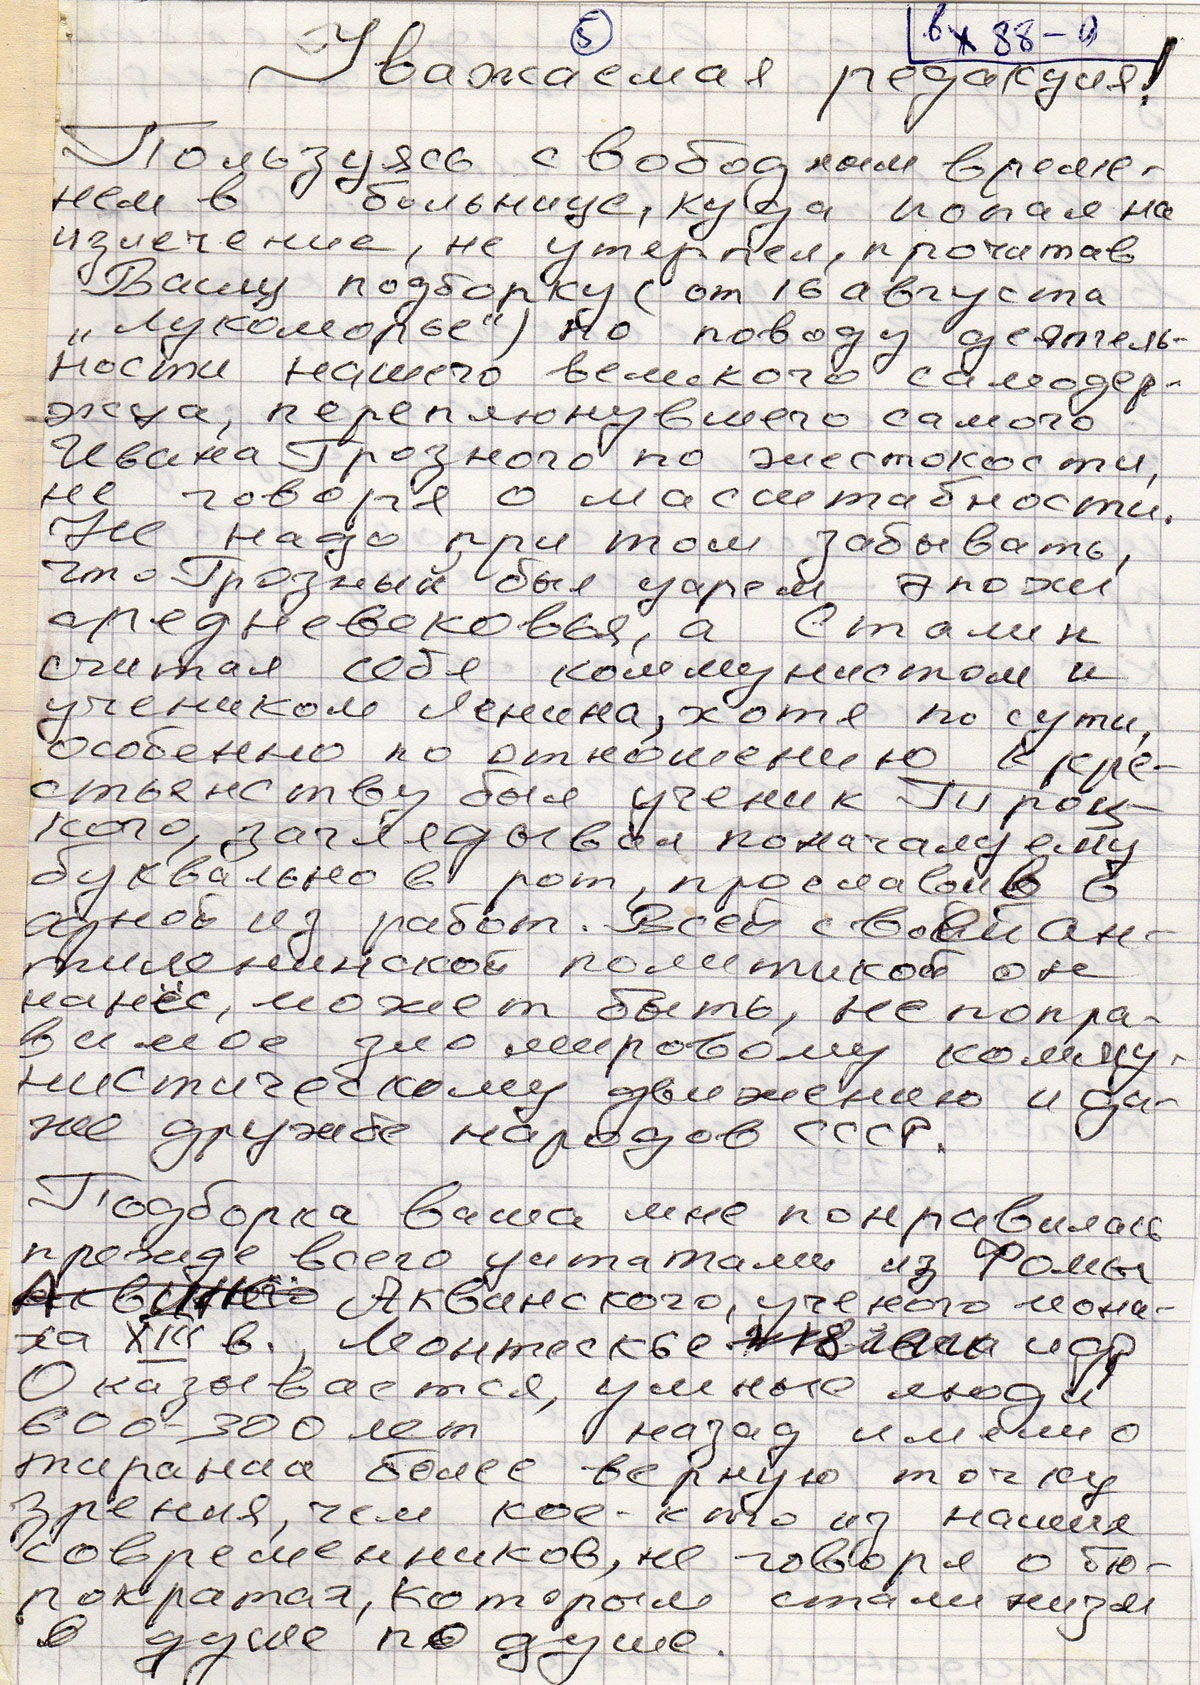 5
вх 88-
Уважаемая редакция!
Пользуясь свободным време-
нем в больнице, куда попал на
излечение, не утерпел, прочитав
Вашу подборку (от 16 августа
„Лукоморье“) по поводу деятель-
ности нашего великого самодер-
жца, переплюнувшего самого
Ивана Грозного по жестокости,
не говоря о масштабности.
Не надо при том забывать,
что Грозный был царем эпохи
средневековья, а Сталин
считал себя коммунистом и
учеником Ленина, хотя по сути,
особенно по отношению к кре-
стьянству был ученик Троц-
кого, заглядывал поначалу ему
буквально в рот, прославив в
одной из работ. Всей своей ан-
тиленинской политикой он
нанёс, может быть, непопра-
вимое зло мировому комму-
нистическому движению и да-
же дружбе народов СССР.
Подборка ваша мне понравилась
прежде всего цитатами из Фомы
Акванского, ученого мона-
ха XIII в., Монтескье и др
Оказывается, умные люди
600-300 лет назад имели о
тирании более верную точку
зрения, чем кое-кто из наших
современников, не говоря о бю-
рократах, которым сталинизм
в душе по душе.